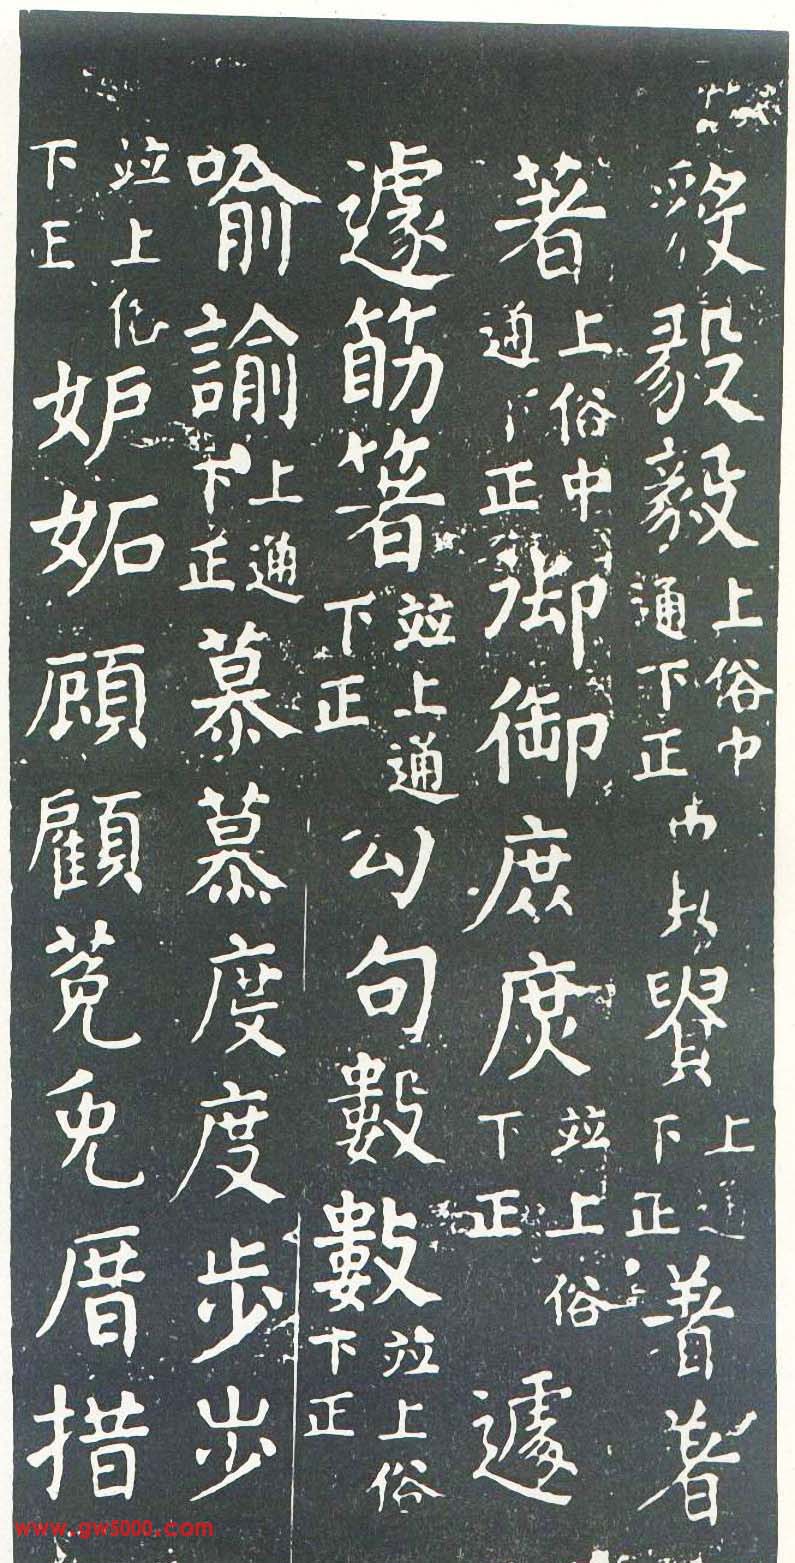 毅毅毅上俗中通下正 賢上通下正著著
著上俗中通下正御御庶庶並上俗下正遽
遽筯箸並上通下正勾句數數並上俗下正
喻諭上通下正慕慕度度步步
並上俗下正妒妬顾顧菟兔厝措
www.gw5000.com